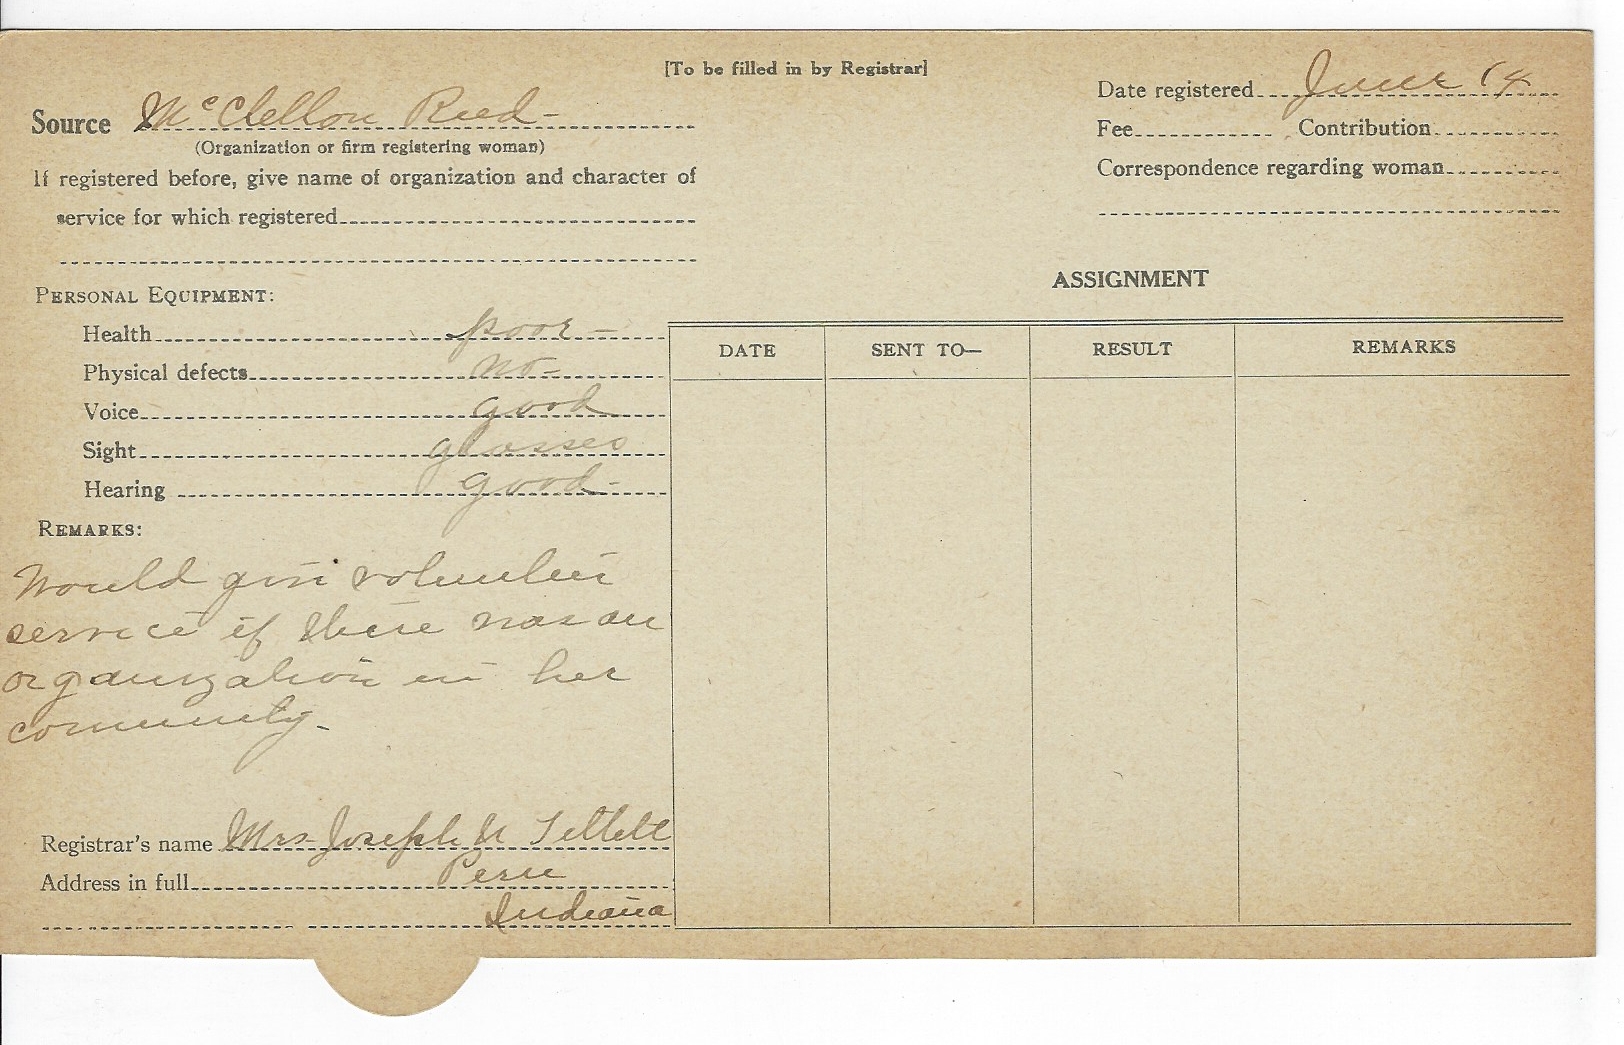 [To be filled in by Registrar]
Source McClellon Reed-
(Organization or firm registering woman)
If registered before, give name of organization and character of
service for which registered
PERSONAL EQUIPMENT:
Health poor -
Physical defects no -
Voice good
Sight glasses
Hearing good -
REMARKS:
Would give volunteer
service if there was an
organization in her
community.
Registrar's name Mrs Joseph N Tillett
Address in full Peru
Indiana
Date registered June 14
Fee Contribution
Correspondence regarding woman
ASSIGNMENT
DATE SENT TO— RESULT REMARKS